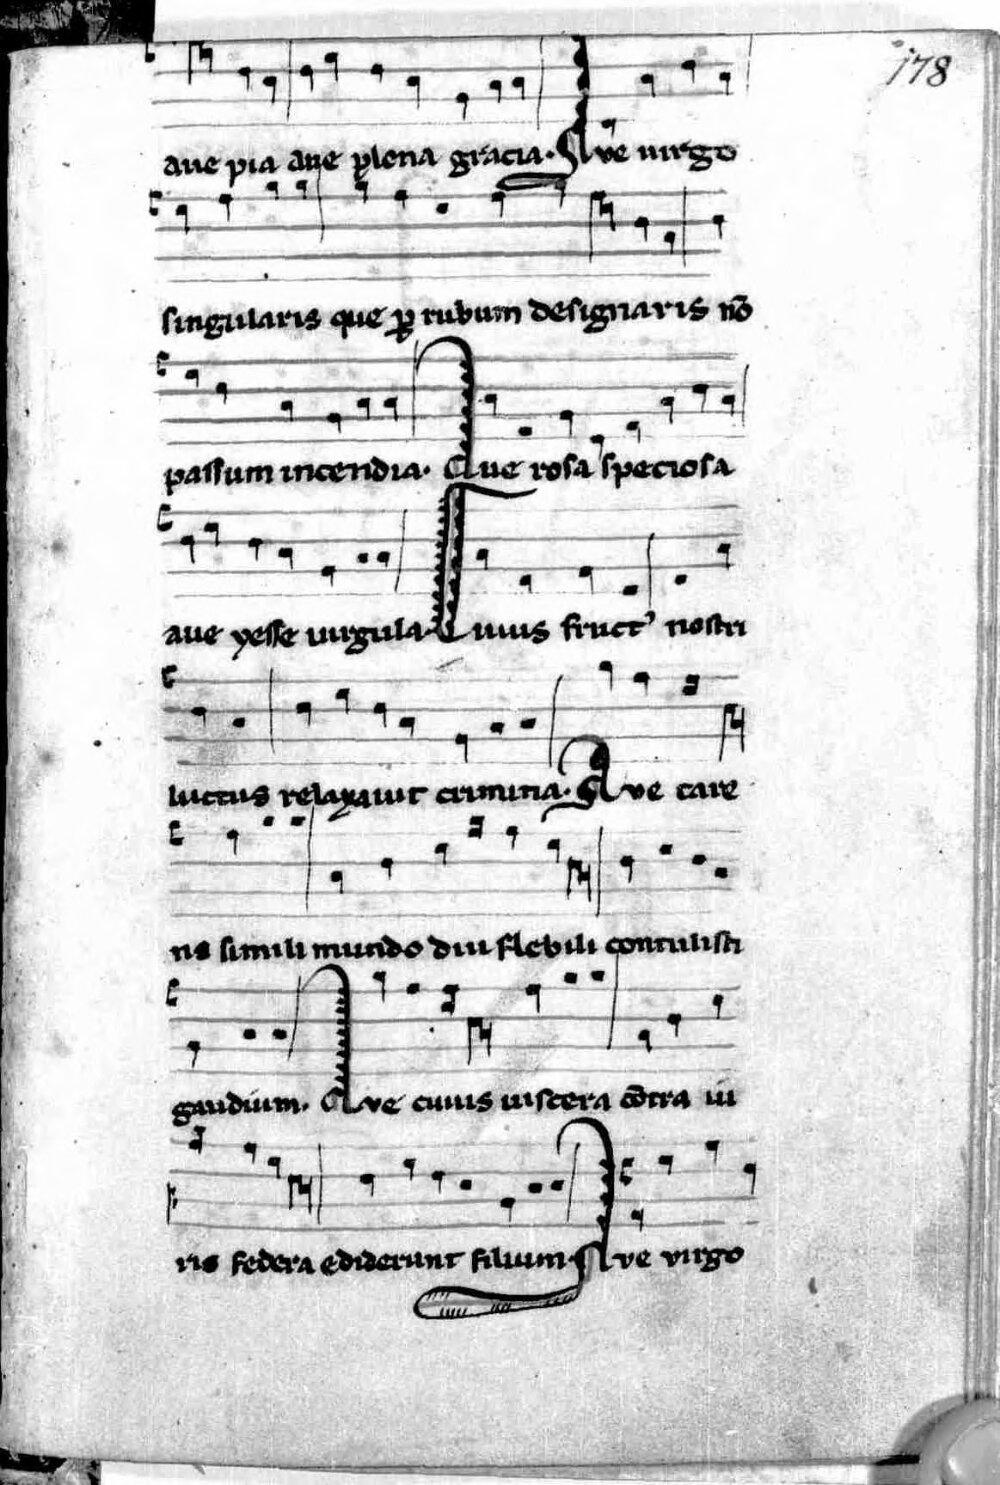 178
aue pia aue plena gracia. Aue uirgo
singularis que p̱ rubum designaris nō
passum incendia. Aue rosa speciosa
aue yesse uirgula. Cuius fruct᾽ nostri
luctus relaxauit crimina. Aue care
ns simili mundo diu flebili contulisti
gaudium. Aue cuius uiscera cōtra iu
ris federa ediderunt filium. Aue virgo